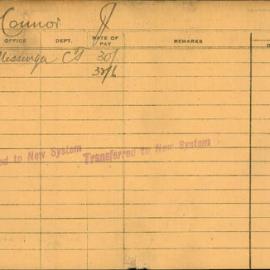 Connor J
OFFICE DEPT. RATE OF PAY REMARKS
30/
32/6
ed to New System Transferred to New System